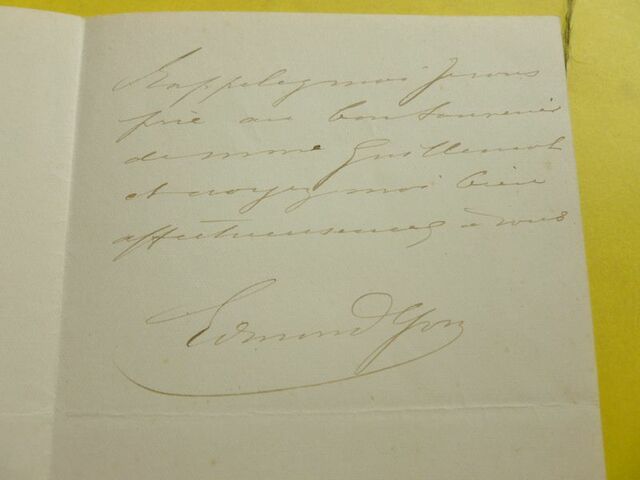 Rappelez moi Je vous
prie au bon souvenir
de mme Guillemot
et croyez moi bien
affectueusement à vous
Edmond Yon